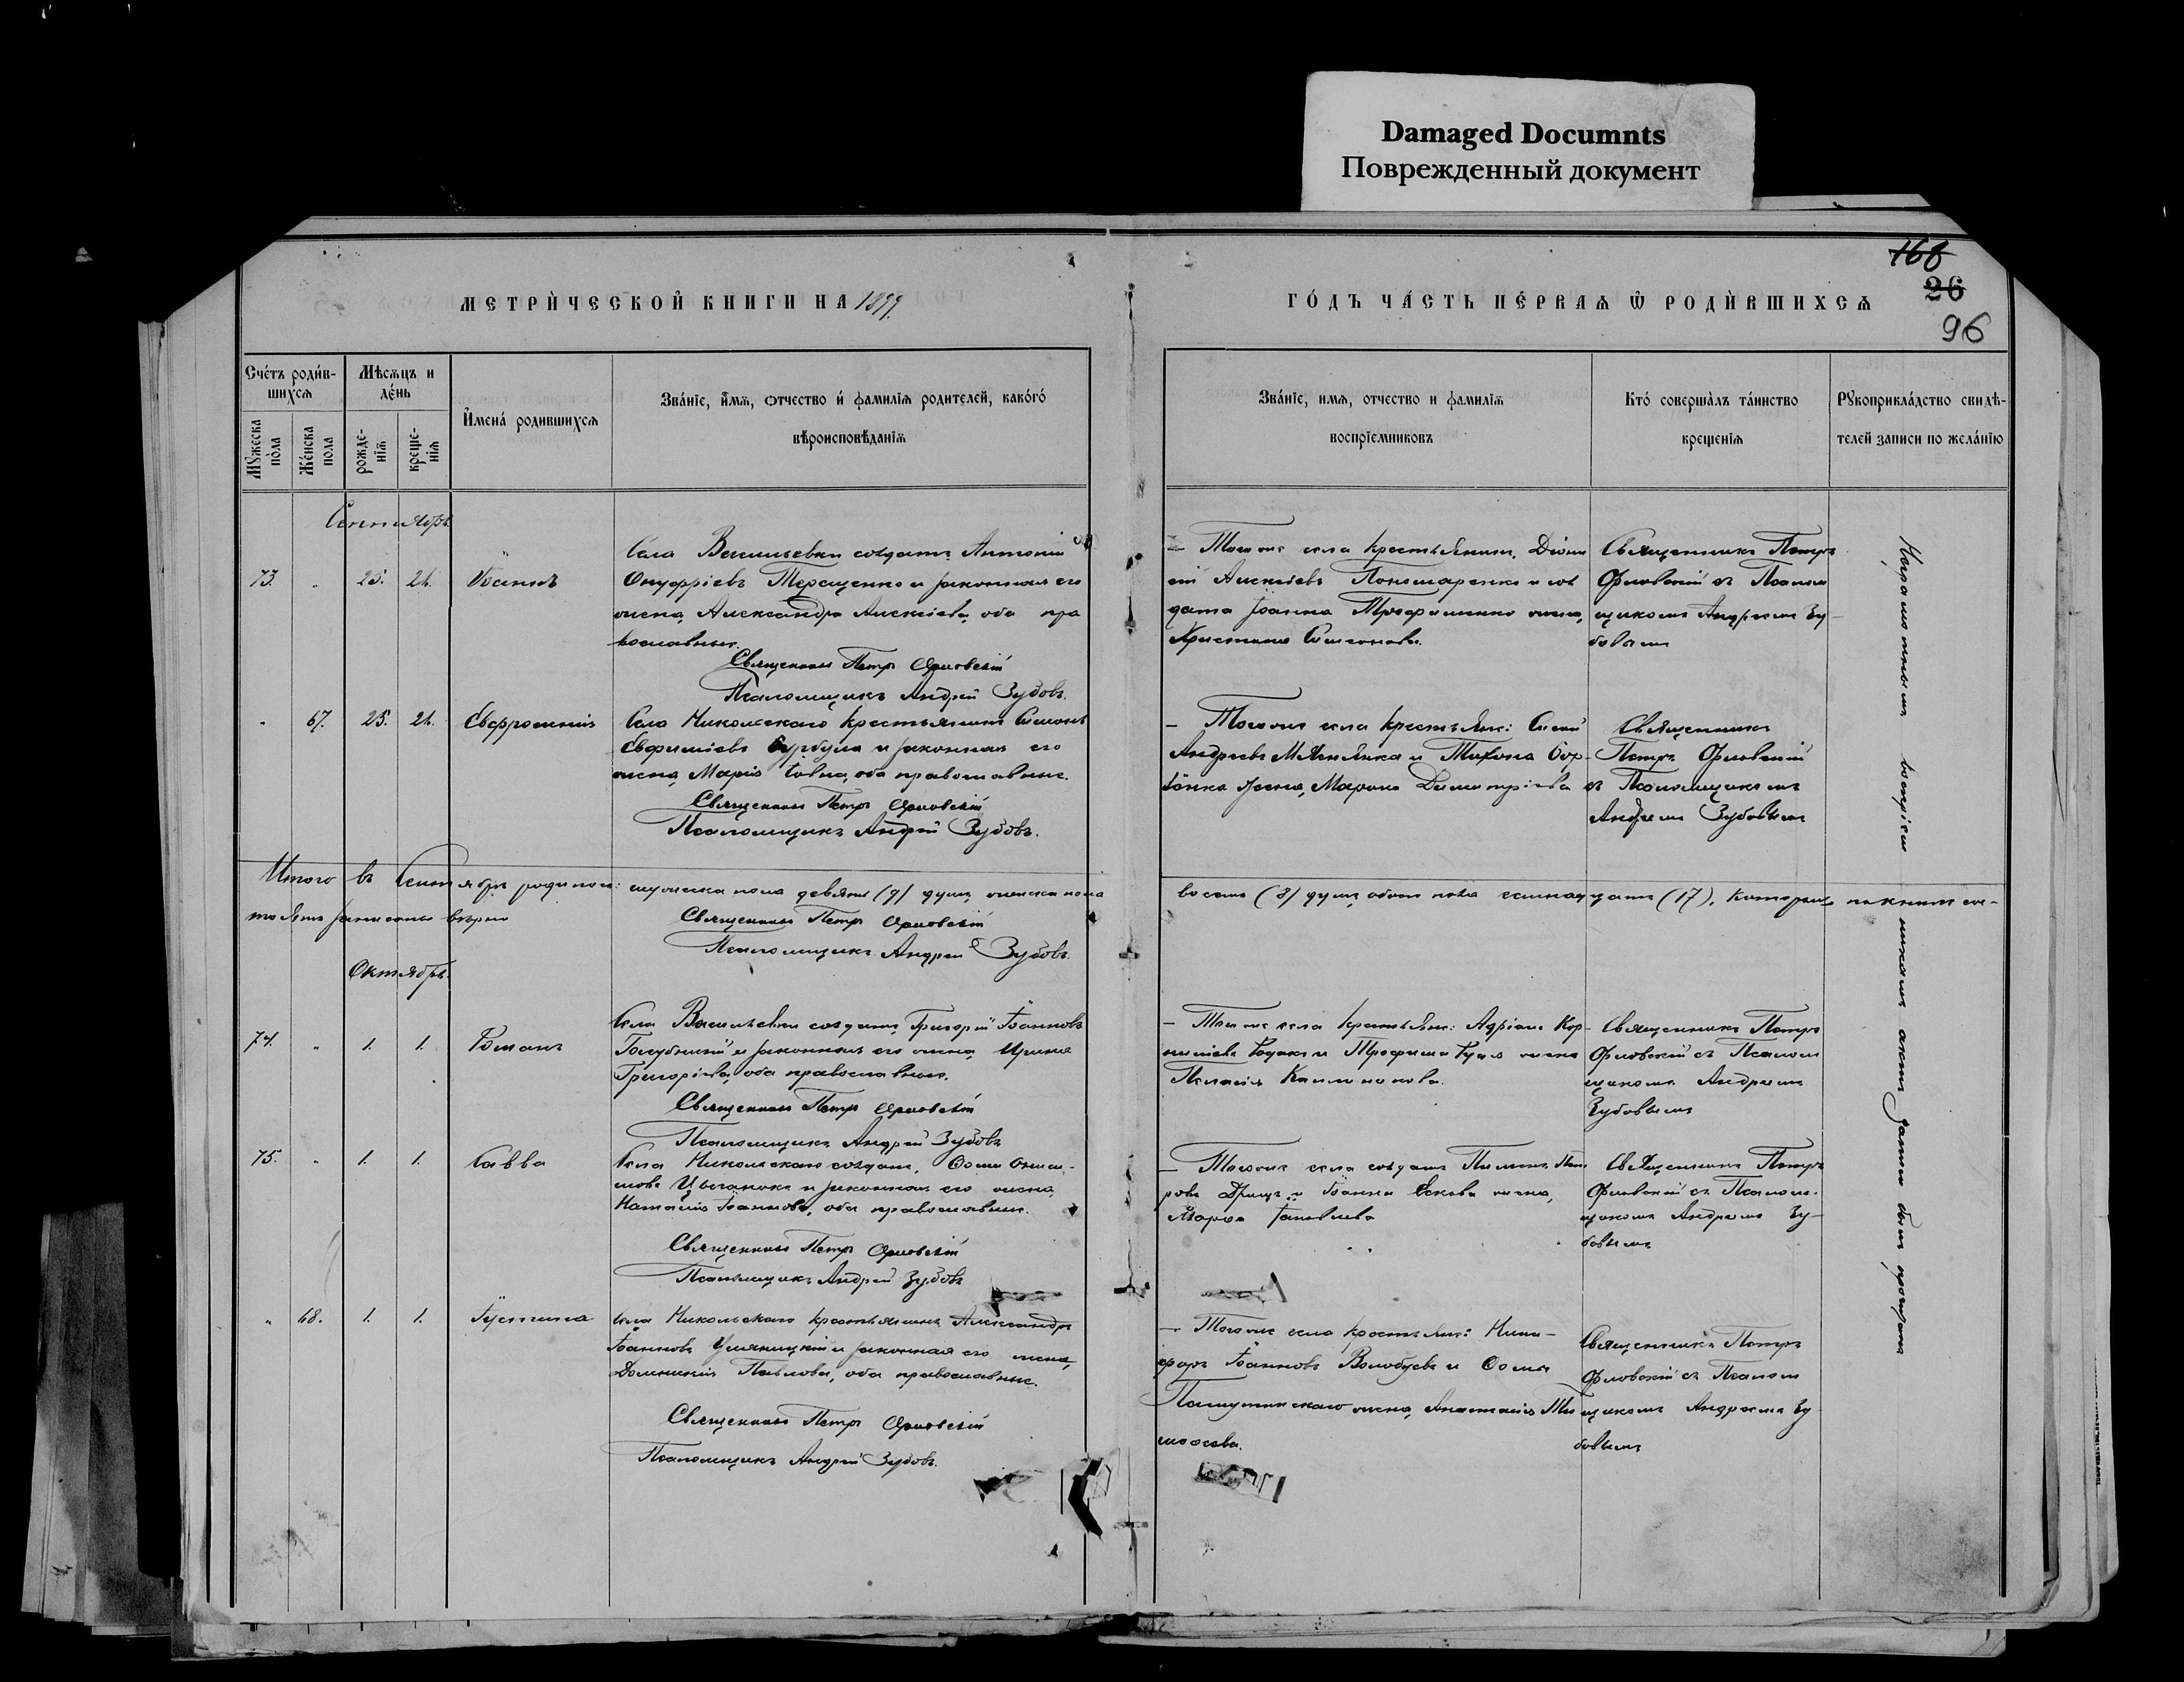 Damaged Documnts
Поврежденный документ
168
26
96
МЕТРИ́ЧЕСКОЙ КНИГИ НА 1899
ГО́ДЪ ЧА́СТЬ ПЕ́РВАѦ Ѡ РОДИ́ВШИХСѦ
Сче́тъ роди́в-
шихсѧ
Мѣсѧцъ и
де́нь
Мꙋжеска
по̀ла
Же́нска
пола
рожде-
нїѧ
креще-
нїѧ
И҆мена́ родившихсѧ
Зва́нїе, и҆́мѧ, ѻтчество и҆ фамилїѧ родителей, како́го́
вѣроисповѣданїѧ
Зва́нїе, имѧ, отчество и фамилїѧ
воспрїемниковъ
Кто́ соверша̀лъ та́инство
крещенїѧ
Рꙋкоприкла́дство свидѣ-
телей записи по жела́нїю
Сентябрь
73. " 25. 26. Іоаннъ
Села Васильевки солдатъ Антоній
Онуфріевъ Терещенко и законная его
жена, Александра Алексіева, оба пра
вославные.
Священникъ Петръ Орловскій
Псаломщикъ Андрей Зубовъ.
— Того же села крестьянинъ, Діони
сій Алексіевъ Пономаренко и сол
дата Іоанна Трофименко жена,
Христина Симонова.
Священникъ Петръ
Орловскій съ Псалом
щикомъ Андреемъ Зу-
бовымъ
" 67. 25. 26. Евфросинія
Села Никольскаго крестьянинъ Симонъ
Евфиміевъ и законная его
жена, Марія оба православные.
Священникъ Петръ Орловскій
Псаломщикъ Андрей Зубовъ.
— Того же села крестьян:
Андреевъ и Тихона
жена, Марина Димитріева
Священникъ
Петръ Орловскій
съ Псаломщикомъ
Андреемъ Зубовымъ
Итого въ Сентябрѣ родилось: мужеска пола девять (9) душъ, женска пола
восемь (8) душъ, обоего пола семнадцать (17), которые
записаны вѣрно
Священникъ Петръ Орловскій
Псаломщикъ Андрей Зубовъ.
Октябрь
74. " 1. 1. Романъ
Села Васильевки солдатъ, Григорій Іоанновъ
Голубничій и законная его жена, Ирина
Григоріева, оба православные.
Священникъ Петръ Орловскій
Псаломщикъ Андрей Зубовъ
— Того же села крестьян: Адріанъ Кор-
ниліевъ и Трофима жена
Пелагія
Священникъ Петръ
Орловскій съ Псалом
щикомъ Андреемъ
Зубовымъ
75. " 1. 1. Савва
Села Никольскаго солдатъ, Фома Ониси-
мовъ Цыганокъ и законная его жена,
Наталія Іоаннова, оба православные.
Священникъ Петръ Орловскій
Псаломщикъ Андрей Зубовъ
— Того же села солдатъ Пименъ Пет
ровъ и Іоанна жена,
Марфа
Священникъ Петръ
Орловскій съ Псалом-
щикомъ Андреемъ Зу-
бовымъ
" 68. 1. 1. Іустина
Села Никольскаго крестьянинъ, Александръ
Іоанновъ и законная его жена,
Домникія Павлова, оба православные.
Священникъ Петръ Орловскій
Псаломщикъ Андрей Зубовъ.
— Того же села крестьян: Ники-
форъ Іоанновъ Волобуевъ и Фомы
жена, Анастасія Ти
моѳеева.
Священникъ Петръ
Орловскій съ Псалом
щикомъ Андреемъ Зу
бовымъ
Неграмотнымъ актъ записи былъ прочитанъ